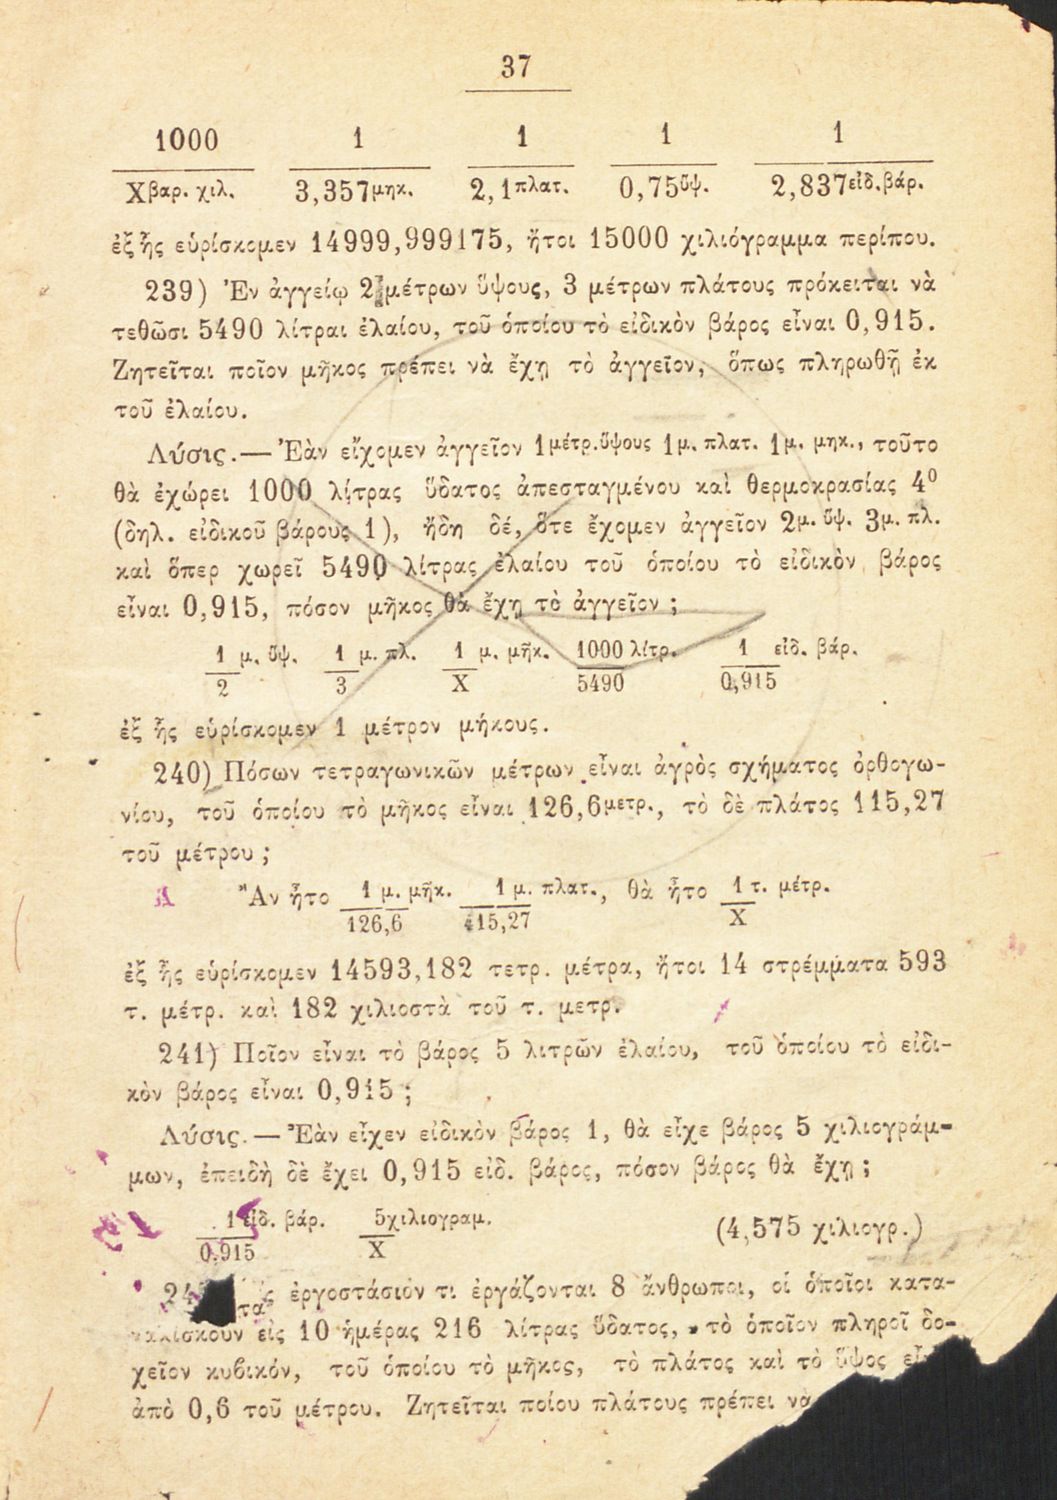 37
1000 1 1 1 1
Χβαρ. χιλ. 3,357μηκ. 2,1πλατ. 0,75ὕψ. 2,837εἰδ.βάρ.
ἐξ ἧς εὑρίσκομεν 14999,999175, ἤτοι 15000 χιλιόγραμμα περίπου.
239) Ἐν ἀγγείῳ 2 μέτρων ὕψους, 3 μέτρων πλάτους πρόκειται νὰ
τεθῶσι 5490 λίτραι ἐλαίου, τοῦ ὁποίου τὸ εἰδικὸν βάρος εἶναι 0,915.
Ζητεῖται ποῖον μῆκος πρέπει νὰ ἔχῃ τὸ ἀγγεῖον, ὅπως πληρωθῇ ἐκ
τοῦ ἐλαίου.
Λύσις.— Ἐὰν εἴχομεν ἀγγεῖον 1μέτρ.ὕψους 1μ. πλατ. 1μ. μηκ., τοῦτο
θὰ ἐχώρει 1000 λίτρας ὕδατος ἀπεσταγμένου καὶ θερμοκρασίας 4⁰
(δηλ. εἰδικοῦ βάρους 1), ἤδη δέ, ὅτε ἔχομεν ἀγγεῖον 2μ. ὕψ. 3μ. πλ.
καὶ ὅπερ χωρεῖ 5490 λίτρας ἐλαίου τοῦ ὁποίου τὸ εἰδικὸν βάρος
εἶναι 0,915, πόσον μῆκος θὰ ἔχῃ τὸ ἀγγεῖον ;
1 μ. ὕψ. 1 μ. πλ. 1 μ. μῆκ. 1000 λίτρ. 1 εἰδ. βάρ.
2 3 Χ 5490 0,915
ἐξ ἧς εὑρίσκομεν 1 μέτρον μήκους.
240) Πόσων τετραγωνικῶν μέτρων εἶναι ἀγρὸς σχήματος ὀρθογω-
νίου, τοῦ ὁποίου τὸ μῆκος εἶναι 126,6μετρ., τὸ δὲ πλάτος 115,27
τοῦ μέτρου ;
Ἂν ἦτο 1 μ. μῆκ. 1 μ. πλατ., θὰ ἦτο 1 τ. μέτρ.
126,6 115,27 Χ
ἐξ ἧς εὑρίσκομεν 14593,182 τετρ. μέτρα, ἤτοι 14 στρέμματα 593
τ. μέτρ. καὶ 182 χιλιοστὰ τοῦ τ. μετρ.
241) Ποῖον εἶναι τὸ βάρος 5 λιτρῶν ἐλαίου, τοῦ ὁποίου τὸ εἰδι-
κὸν βάρος εἶναι 0,915 ;
Λύσις.— Ἐὰν εἶχεν εἰδικὸν βάρος 1, θὰ εἶχε βάρος 5 χιλιογράμ-
μων, ἐπειδὴ δὲ ἔχει 0,915 εἰδ. βάρος, πόσον βάρος θὰ ἔχῃ ;
1 εἰδ. βάρ. 5χιλιογραμ. (4,575 χιλιογρ.)
0,915 Χ
ἐργοστάσιόν τι ἐργάζονται 8 ἄνθρωποι, οἱ ὁποῖοι κατα-
ναλίσκουν εἰς 10 ἡμέρας 216 λίτρας ὕδατος, τὸ ὁποῖον πληροῖ δο-
χεῖον κυβικόν, τοῦ ὁποίου τὸ μῆκος, τὸ πλάτος καὶ τὸ ὕψος
ἀπὸ 0,6 τοῦ μέτρου. Ζητεῖται ποίου πλάτους πρέπει νὰ